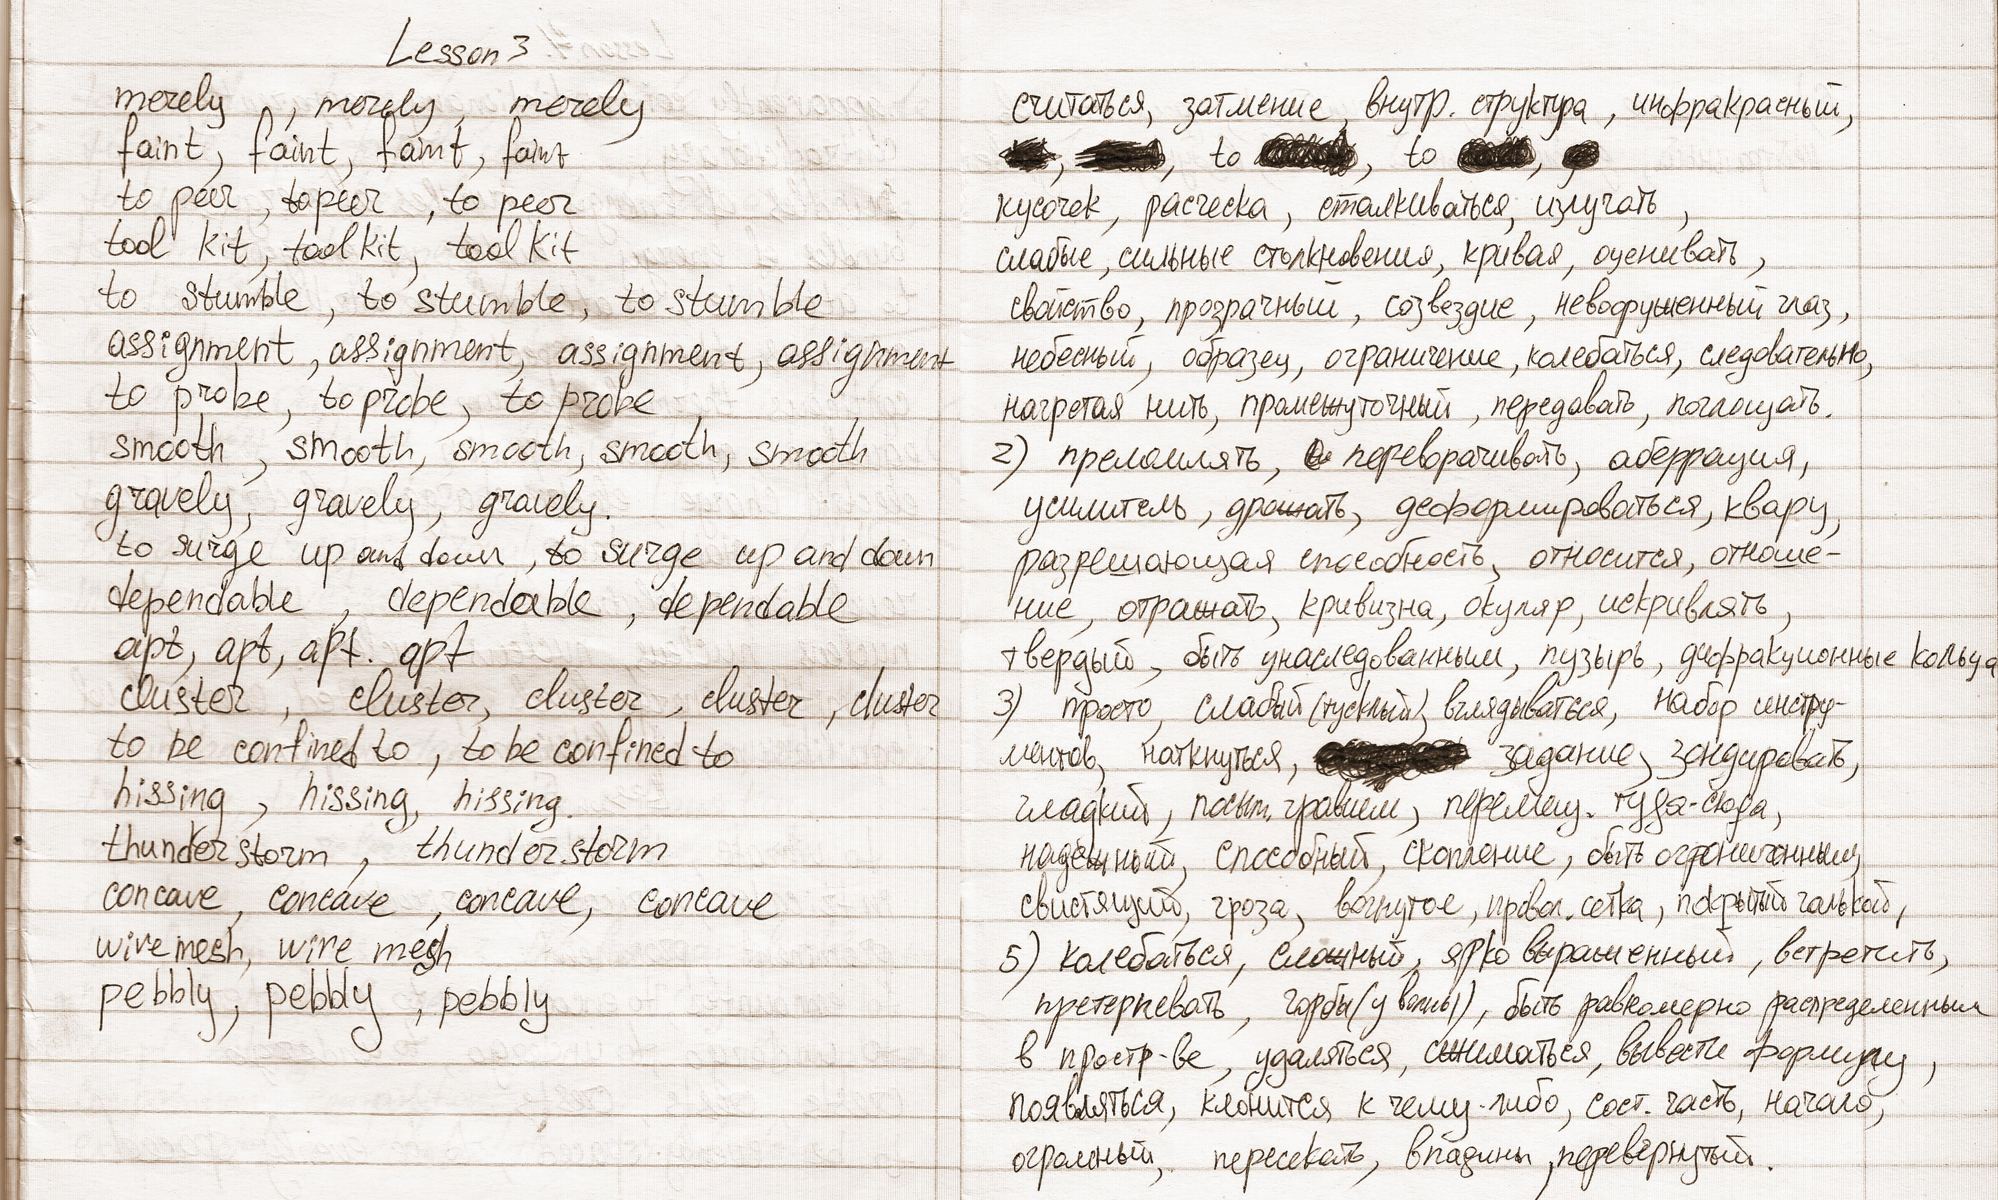 Lesson 3
merely, merely, merely
faint, faint, faint, faint
to peer, to peer, to peer
tool kit, tool kit, tool kit
to stumble, to stumble, to stumble
assignment, assignment, assignment, assignment
to probe, to probe, to probe,
smooth, smooth, smooth, smooth, smooth
gravely, gravely, gravely.
to surge up and down, to surge up and down
dependable, dependable, dependable
apt, apt, apt. apt
cluster, cluster, cluster, cluster, cluster
to be confined to, to be confined to
hissing, hissing, hissing.
thunderstorm, thunderstorm
concave, concave, concave, concave
wire mesh, wire mesh
pebbly, pebbly, pebbly
считаться, затмение, внутр. структура, инфракрасный,
to, to
кусочек, расческа, сталкиваться, излучать,
слабые, сильные столкновения, кривая, оценивать,
свойство, прозрачный, созвездие, невооруженный глаз,
небесный, образец, ограничение, колебаться, следовательно,
нагретая нить, промежуточный, передавать, поглощать.
2) преломлять, переворачивать, аберрация,
усилитель, дрожать, деформироваться, кварц,
разрешающая способность, относится, отноше-
ние, отражать, кривизна, окуляр, искривлять,
твердый, быть унаследованным, пузырь, дифракционные кольца
3) просто, слабый (тусклый), вглядываться, набор инстру-
ментов, наткнуться, задание, зондировать,
гладкий, посып. гравием, перемещ. туда-сюда,
надежный, способный, скопление, быть ограниченным,
свистящий, гроза, вогнутое, провол. сетка, покрытый галькой,
5) колебаться, сложный, ярко выраженный, встретить,
претерпевать, горбы (у волны), быть равномерно распределенным
в простр-ве, удаляться, сжиматься, вывести формулу,
появляться, клонится к чему-либо, сост. часть, начало,
огромный, пересекать, впадины, перевернутый.